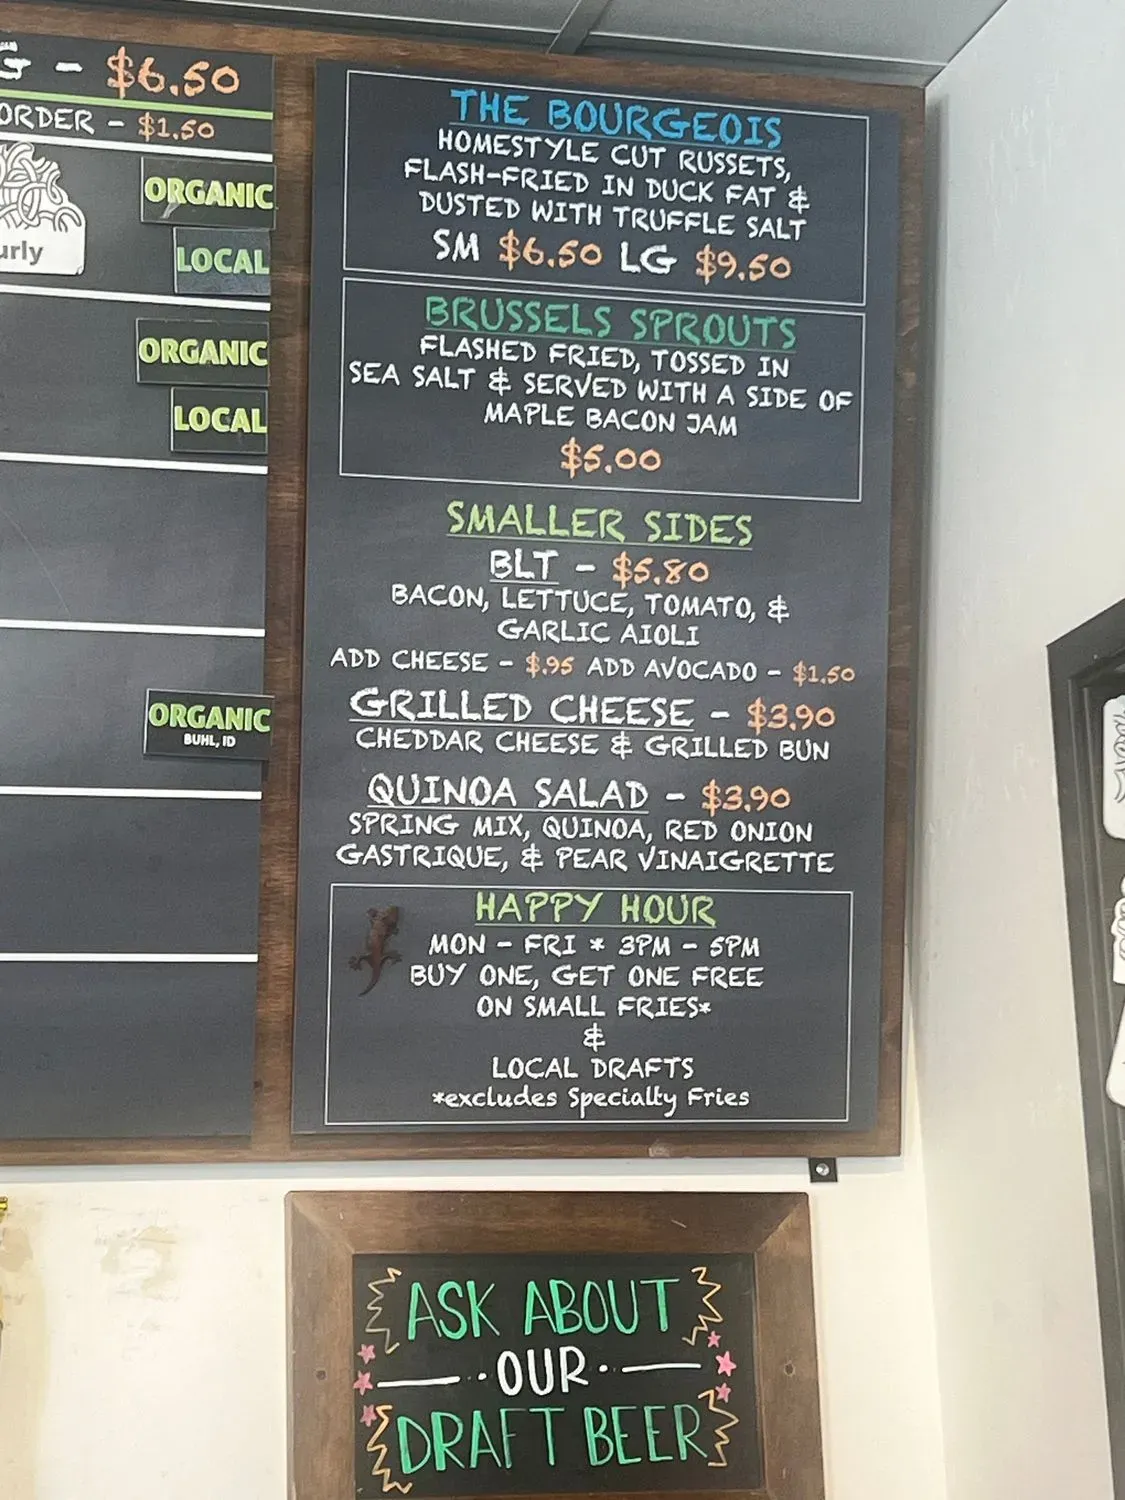 G - $6.50
ORDER - $1.50
ORGANIC
LOCAL
urly
ORGANIC
LOCAL
ORGANIC
BUHL, ID
THE BOURGEOIS
HOMESTYLE CUT RUSSETS,
FLASH-FRIED IN DUCK FAT &
DUSTED WITH TRUFFLE SALT
SM $6.50 LG $9.50
BRUSSELS SPROUTS
FLASHED FRIED, TOSSED IN
SEA SALT & SERVED WITH A SIDE OF
MAPLE BACON JAM
$5.00
SMALLER SIDES
BLT - $5.80
BACON, LETTUCE, TOMATO, &
GARLIC AIOLI
ADD CHEESE - $.95 ADD AVOCADO - $1.50
GRILLED CHEESE - $3.90
CHEDDAR CHEESE & GRILLED BUN
QUINOA SALAD - $3.90
SPRING MIX, QUINOA, RED ONION
GASTRIQUE, & PEAR VINAIGRETTE
HAPPY HOUR
MON - FRI * 3PM - 5PM
BUY ONE, GET ONE FREE
ON SMALL FRIES*
&
LOCAL DRAFTS
*excludes Specialty Fries
ASK ABOUT
OUR
DRAFT BEER